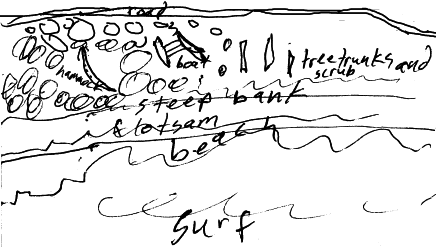 road
boat
hammock
treetrunks and
scrub
steep bank
flotsam
beach
surf